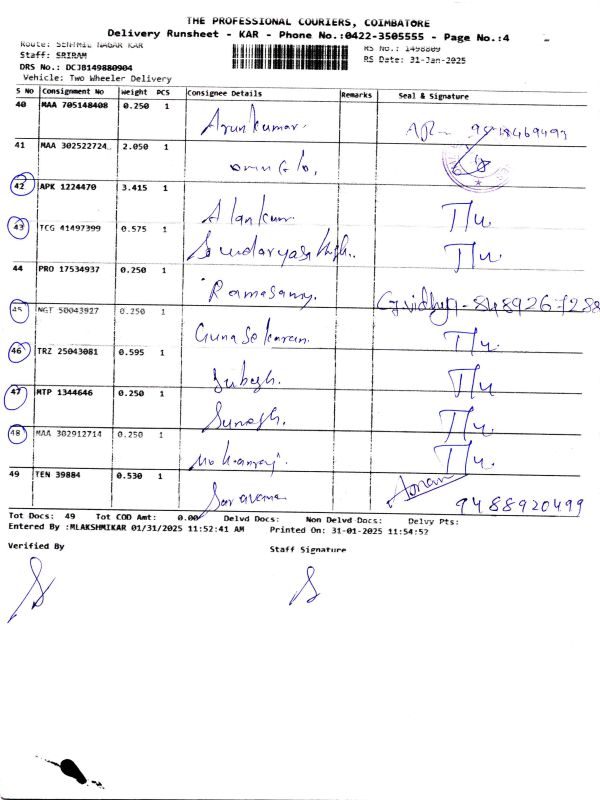 THE PROFESSIONAL COURIERS, COIMBATORE
Delivery Runsheet - KAR - Phone No.:0422-3505555 - Page No.:4
Route: SENTHIL NAGAR KAR
RS No.: 1498809
Staff: SRIRAM
RS Date: 31-Jan-2025
DRS No.: DCJB149880904
Vehicle: Two Wheeler Delivery
S No Consignment No Weight PCS Consignee Details Remarks Seal & Signature
40 MAA 705148408 0.250 1
Arunkumar.
41 MAA 302522724 2.050 1
42 APK 1224470 3.415 1
Alankum.
43 TCG 41497399 0.575 1
44 PRO 17534937 0.250 1
Ramasamy. G.vidhya - 8489267288
45 NGT 50043927 0.250 1
Gunasekaran.
46 TRZ 25043081 0.595 1
Subash.
47 MTP 1344646 0.250 1
48 MAA 302912714 0.250 1
Mohanraj.
49 TEN 39884 0.530 1
Saravana 9488920499
Tot Docs: 49 Tot COD Amt: 0.00 Delvd Docs: Non Delvd Docs: Delvy Pts:
Entered By :MLAKSHMIKAR 01/31/2025 11:52:41 AM Printed On: 31-01-2025 11:54:52
Verified By Staff Signature